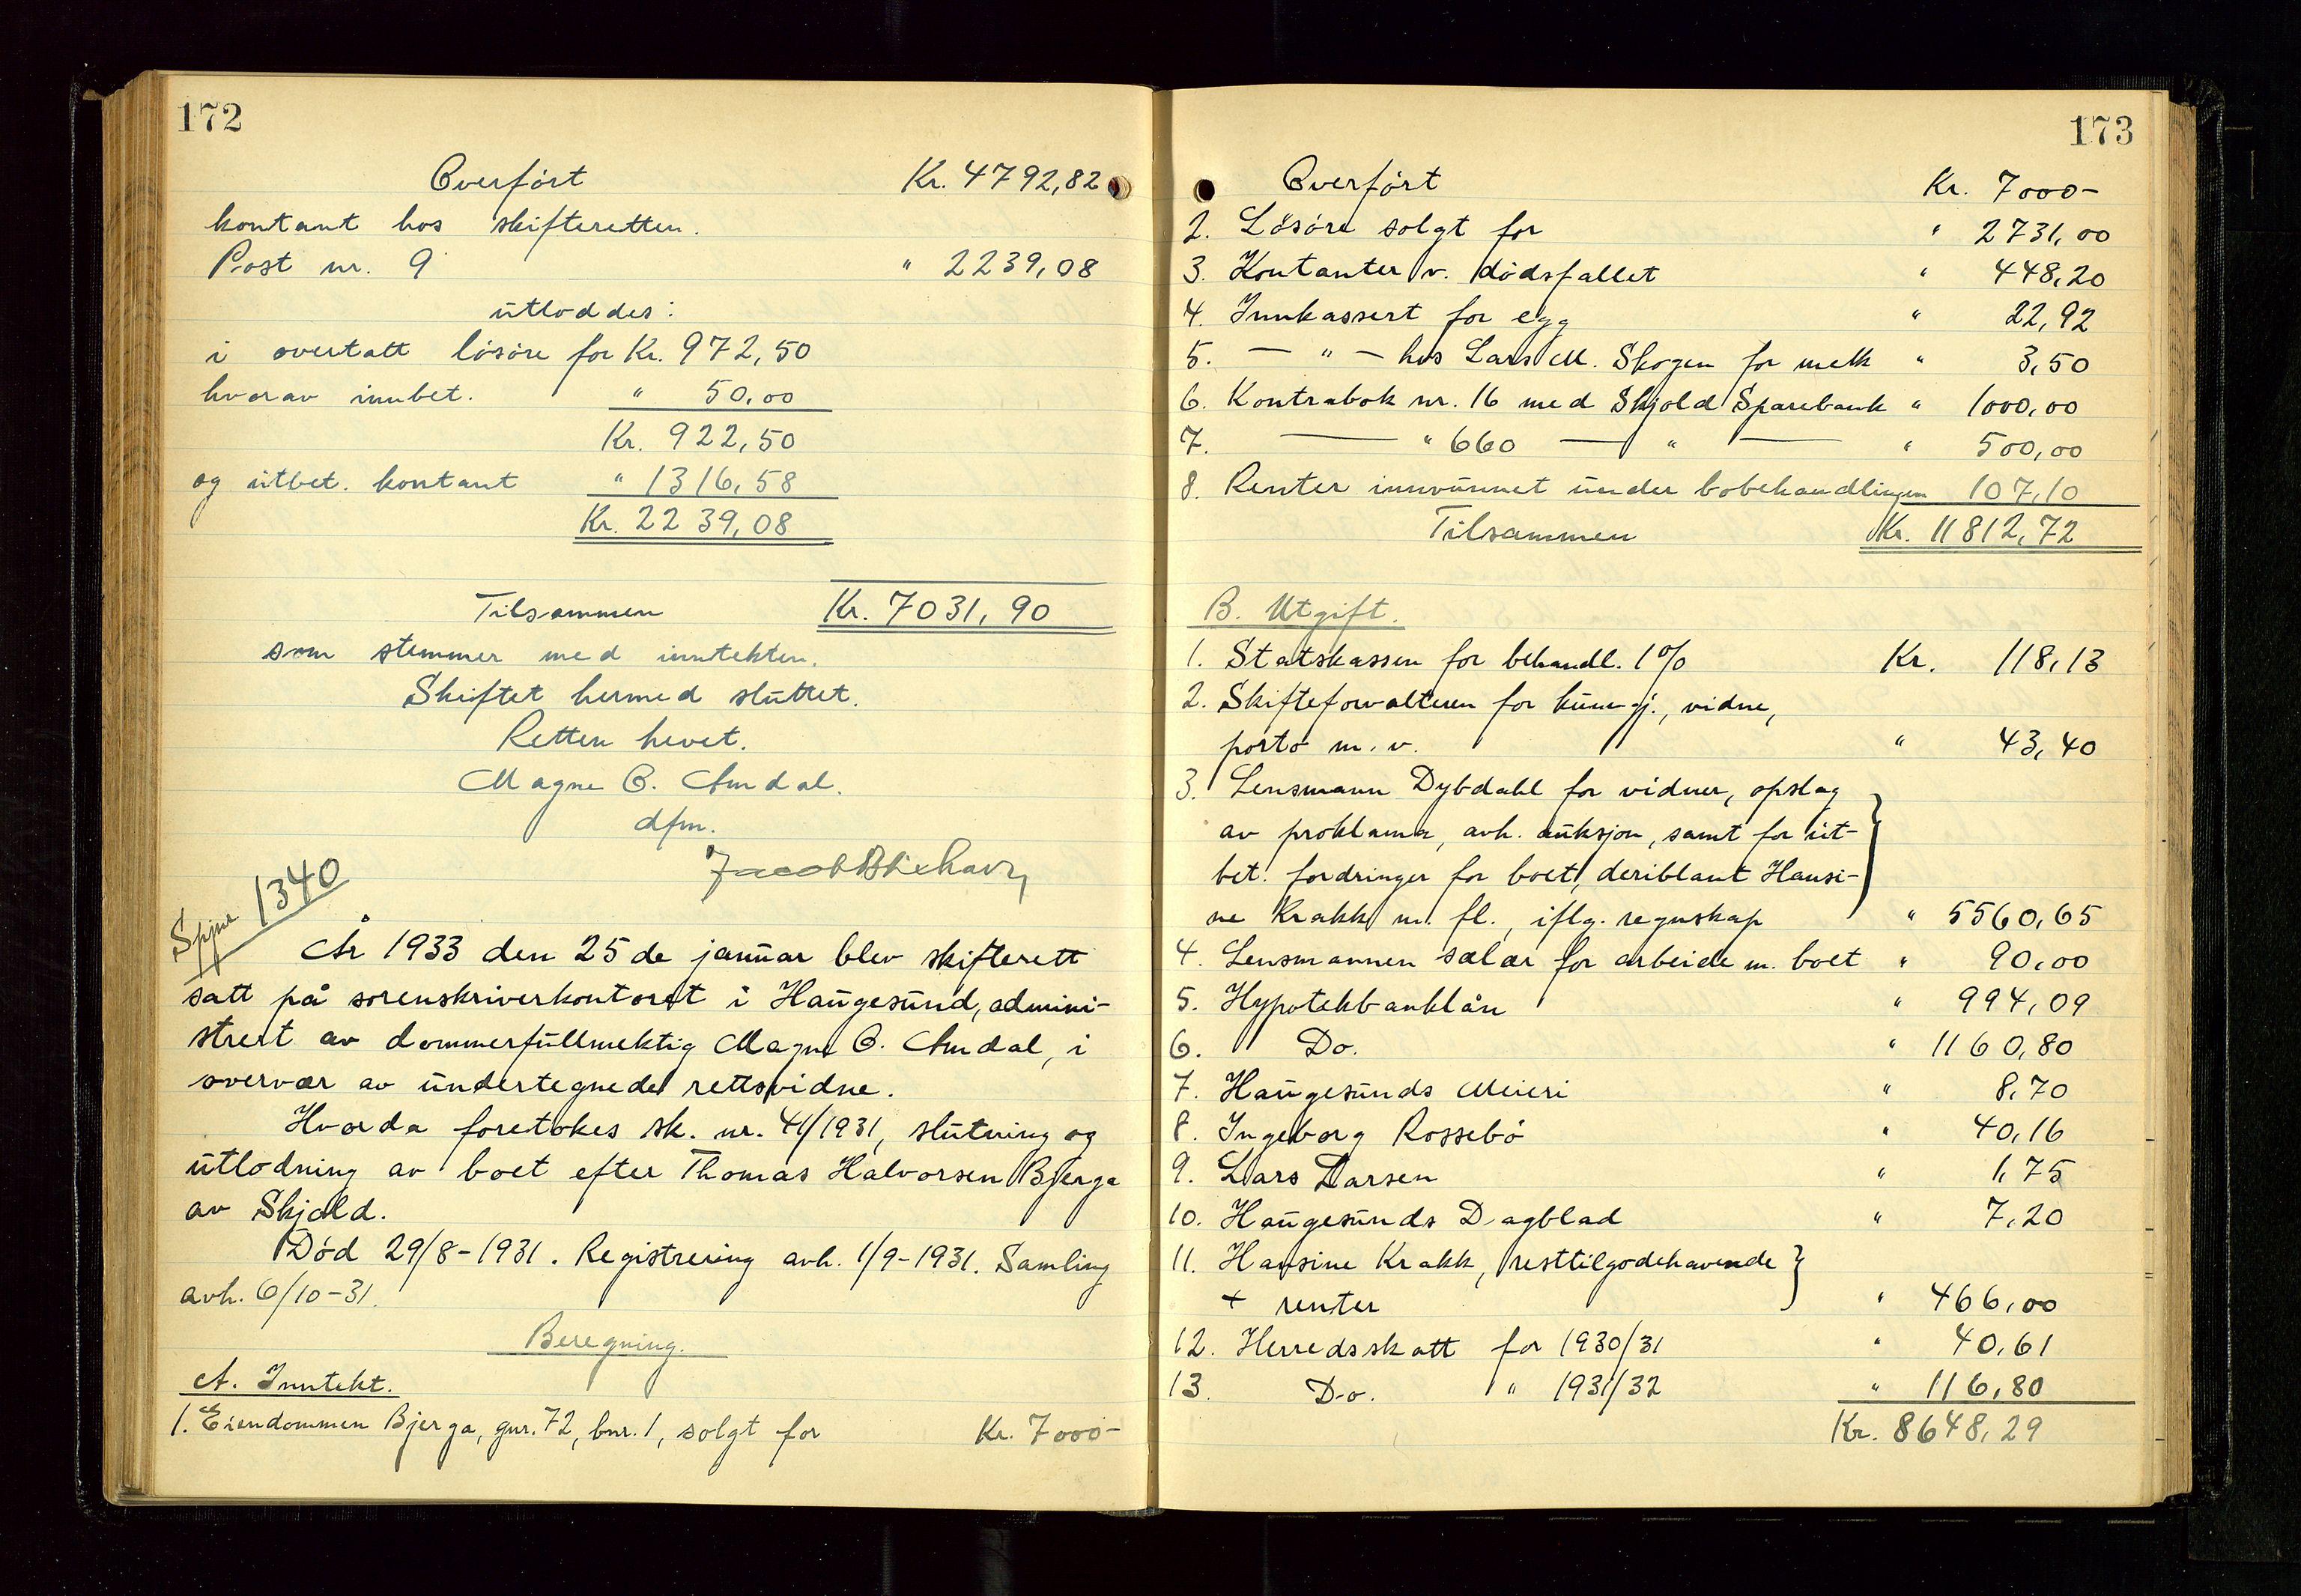 172
Overført Kr. 4792,82
kontant hos skifteretten.
Post nr. 9 " 2239,08
utloddes:
i overtatt løsøre for Kr. 972,50
hvorav innbet. " 50,00
Kr. 922,50
og utbet. kontant " 1316,58
Kr. 2239,08
Tilsammen Kr. 7031,90
som stemmer med inntekten.
Skiftet hermed sluttet.
Retten hevet.
Magne O. Amdal.
dfm.
Jacob
1340
År 1933 den 25de januar blev skifterett
satt på sorenskriverkontoret i Haugesund, admini-
strert av dommerfullmektig Magne O. Amdal, i
overvær av undertegnede rettsvidne.
Hvorda foretokes sk. nr. 41/1931, slutning og
utlodning av boet efter Thomas Halvorsen Bjerga
av Skjold.
Død 29/8-1931. Registrering avh. 1/9-1931. Samling
avh. 6/10-31.
Beregning.
A. Inntekt.
1. Eiendommen Bjerga, gnr. 72, bnr. 1, solgt for Kr. 7000-
173
Overført Kr. 7000-
2. Løsøre solgt for " 2731,00
3. Kontanter v. dødsfallet " 448,20
4. Innkassert for egg " 22,92
5. — " — hos Lars M. Skogen for melk " 3,50
6. Kontrabok nr. 16 med Skjold Sparebank " 1000,00
7. — " 660 — " — " 500,00
8. Renter innvunnet under bobehandlingen 107,10
Tilsammen Kr. 11812,72
B. Utgift.
1. Statskassen for behandl. 1% Kr. 118,13
2. Skifteforvalteren for kunngj., vidne,
porto m.v. " 43,40
3. Lensmann Dybdahl for vidner, opslag
av proklama, avh. auksjon, samt for ut-
bet. fordringer for boet, deriblant Hansi-
ne Krakk m. fl., iflg. regnskap " 5560,65
4. Lensmannen salær for arbeide m. boet " 90,00
5. Hypotekbanklån " 994,09
6. Do. " 1160,80
7. Haugesunds Meieri " 8,70
8. Ingeborg Rossebø " 40,16
9. Lars Larsen " 1,75
10. Haugesunds Dagblad " 7,20
11. Hansine Krakk, resttilgodehavende
+ renter " 466,00
12. Herredsskatt for 1930/31 " 40,61
13. Do. " 1931/32 " 116,80
Kr. 8648,29